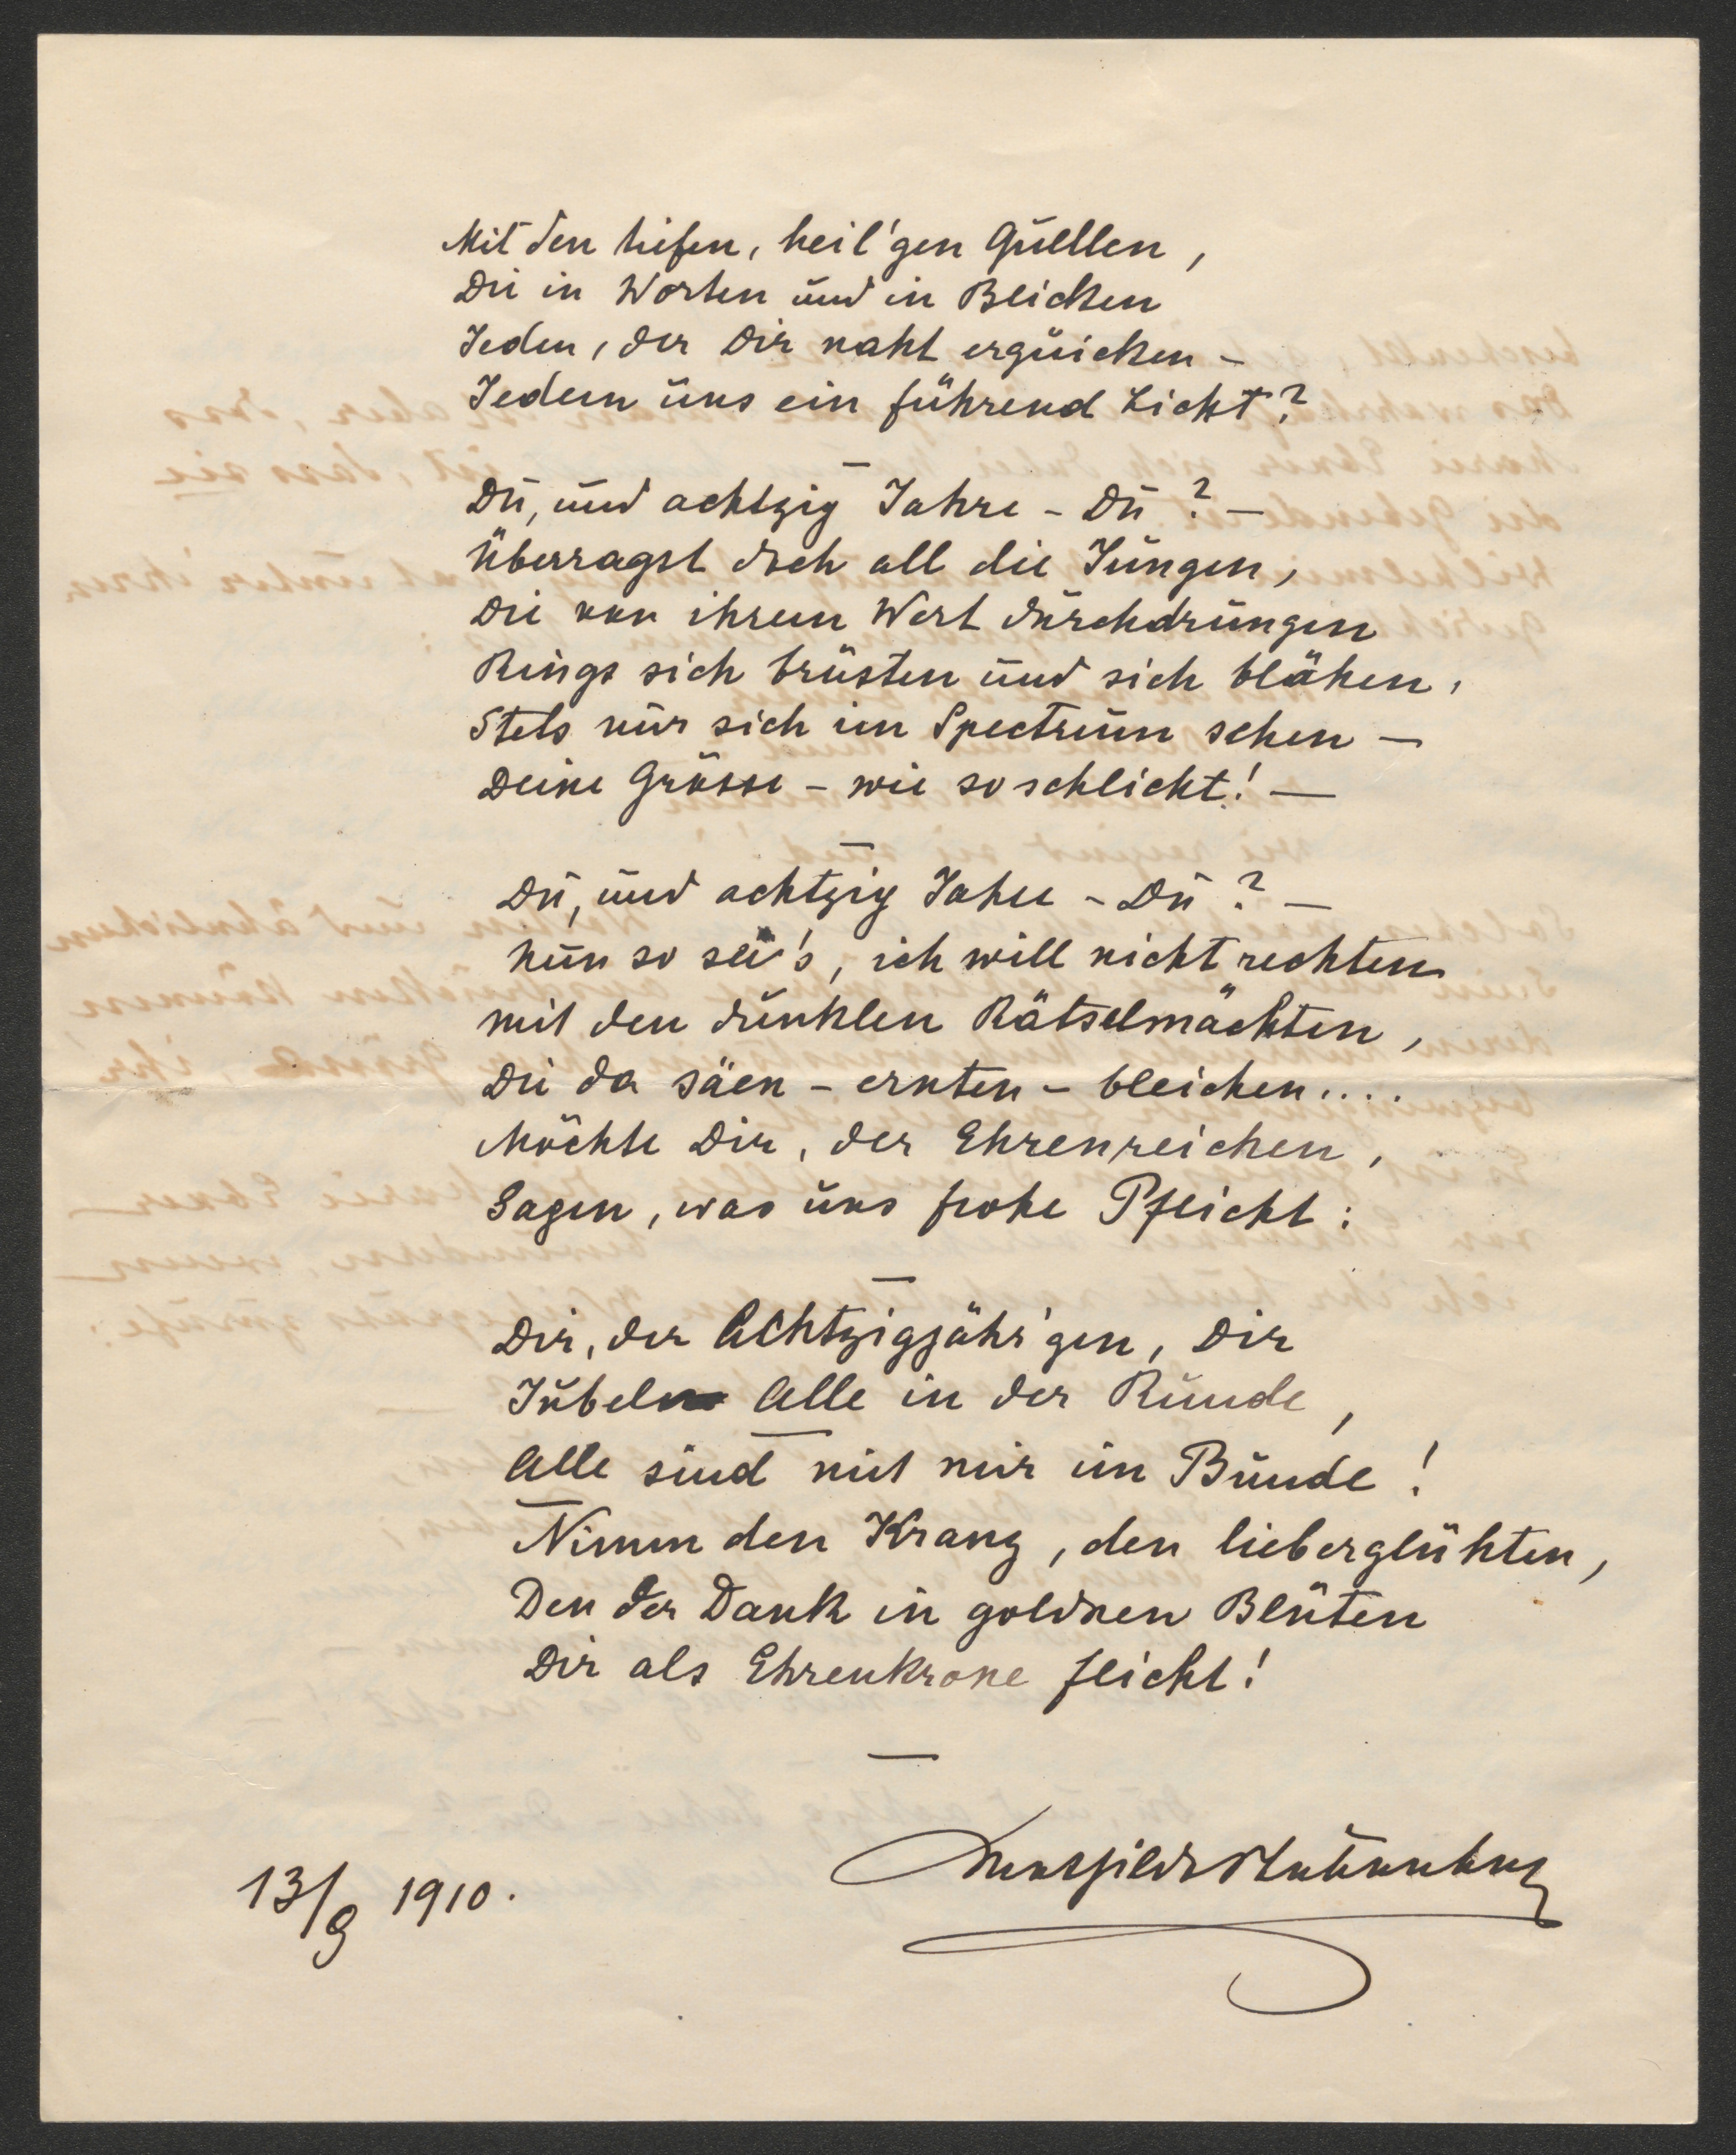 Mit den tiefen, heil'gen Quellen,
Die in Worten und in Blicken
Jeden, der Dir naht erquicken –
Jedem uns ein führend Licht?
—
Du, und achtzig Jahre – Du? –
Überragst doch all die Jungen,
Die von ihrem Wert durchdrungen
Rings sich brüsten und sich blähen,
Stets nur sich im Spectrum sehen –
Deine Grösse – wie so schlicht! —
—
Du, und achtzig Jahre – Du? –
Nun so sei's, ich will nicht rechten
mit den dunklen Rätselmächten,
Die da säen – ernten – bleichen....
Möchte Dir, der Ehrenreichen,
Sagen, was uns frohe Pflicht:
—
Dir, der Achtzigjähr'gen, Dir
Jubeln Alle in der Runde,
Alle sind mit mir im Bunde!
Nimm den Kranz, den lieberglühten,
Den der Dank in goldnen Blüten
Dir als Ehrenkrone flicht!
—
13/9 1910.